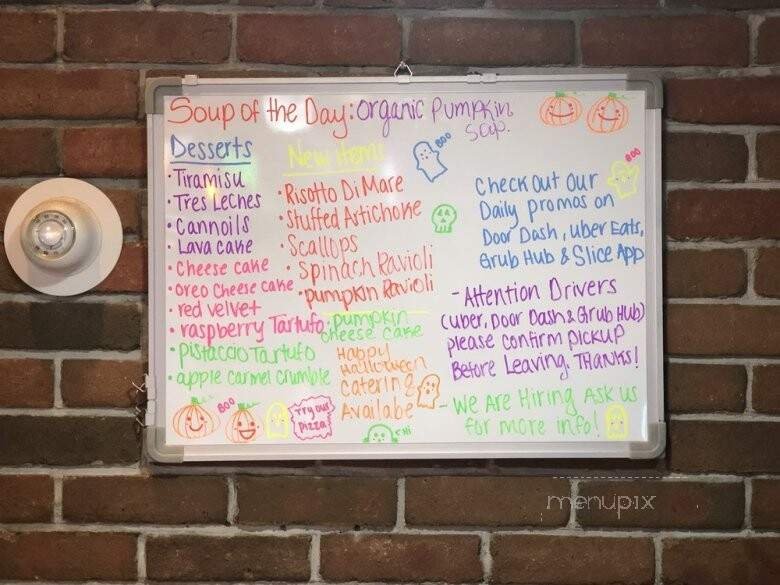 Soup of the Day: Organic Pumpkin
Soup.
Desserts
• Tiramisu
• Tres Leches
• Cannoils
• Lava cake
• Cheese cake
• Oreo Cheese cake
• red velvet
• raspberry Tartufo
• Pistaccio Tartufo
• apple carmel crumble
New Items
• Risotto Di Mare
• Stuffed Artichoke
• Scallops
• Spinach Ravioli
• Pumpkin Ravioli
• Pumpkin
cheese cake
Happy
Halloween
catering
Availabe
BOO
BOO
Check Out Our
Daily promos on
Door Dash, Uber Eats,
Grub Hub & Slice App
- Attention Drivers
(Uber, Door Dash & Grub Hub)
please confirm pickup
Before Leaving. THANKS!
- We Are Hiring Ask us
for more info!
BOO
Try our
Pizza
Hi
menupix